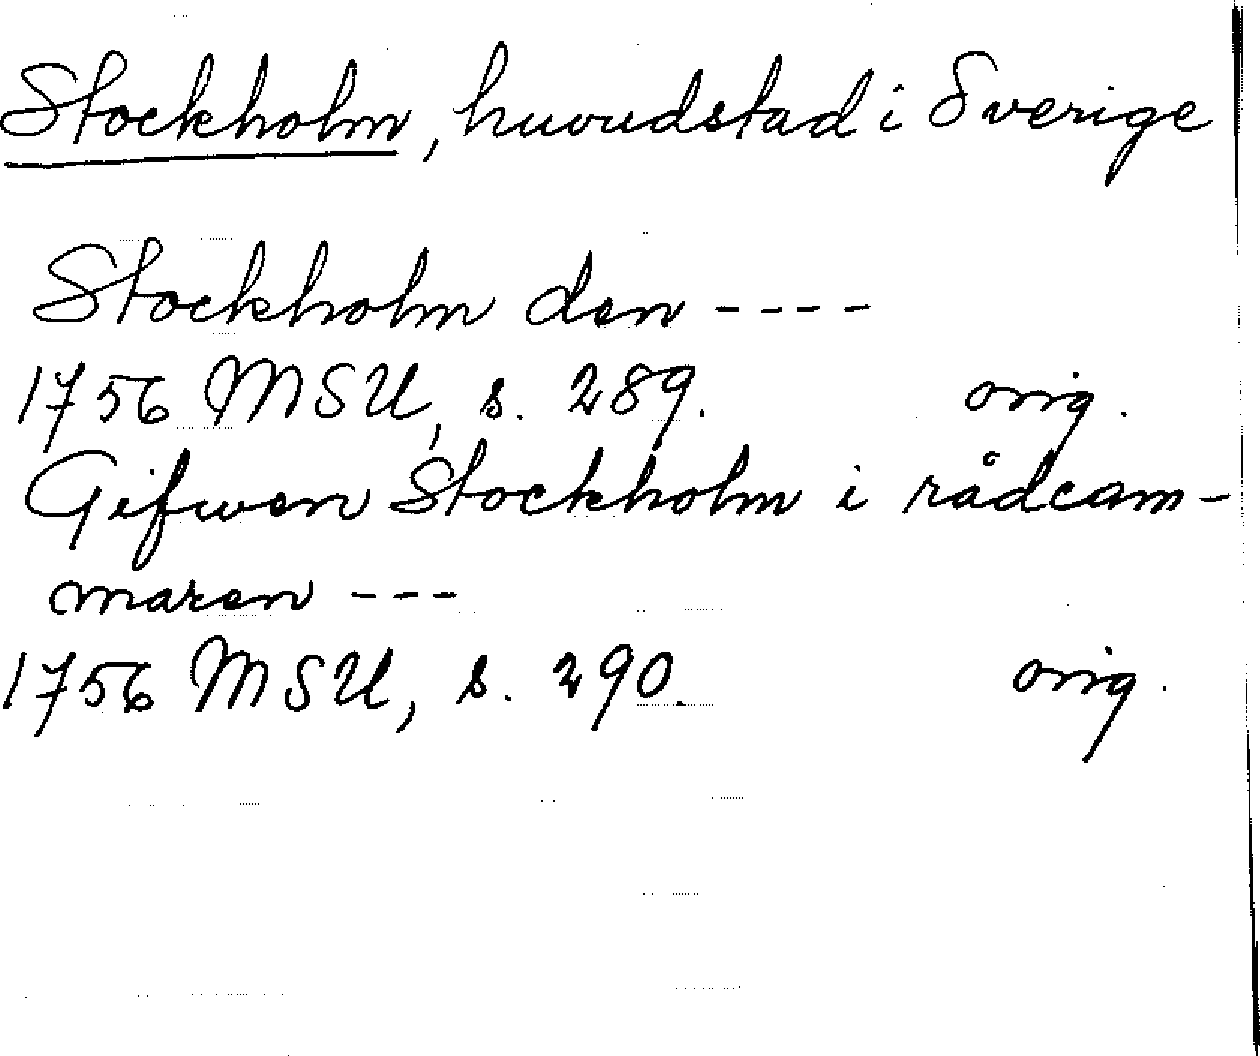 Stockholm, huvudstad i Sverige
Stockholm den ----
1756 MSU, s. 289. orig.
Gifwen Stockholm i rådcam-
maren ---
1756 MSU, s. 290. orig.